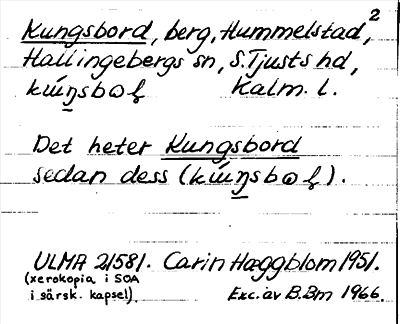 Kungsbord, berg, Hummelstad, 2
Hallingebergs sn, S. Tjusts hd,
Kalm. l.
Det heter Kungsbord
sedan dess
ULMA 21581. Carin Hæggblom 1951.
(xerokopia i SOA
i särsk. kapsel).
Exc. av B.Bm 1966.